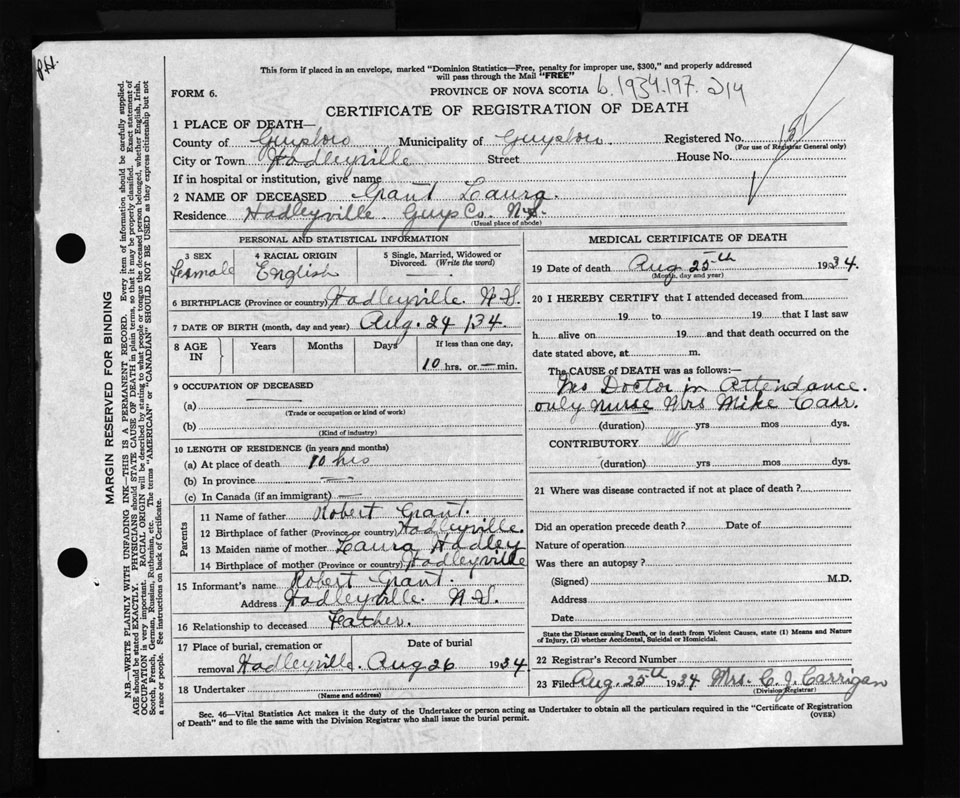 P.H.
This form if placed in an envelope, marked "Dominion Statistics—Free, penalty for improper use, $300," and properly addressed
will pass through the Mail "FREE"
FORM 6.
PROVINCE OF NOVA SCOTIA b. 1934. 197. 214
CERTIFICATE OF REGISTRATION OF DEATH
1 PLACE OF DEATH—
County of Guysboro Municipality of Guysboro. Registered No.
(For use of Registrar General only)
City or Town Hadleyville Street House No.
If in hospital or institution, give name
2 NAME OF DECEASED Grant Laura.
Residence Hadleyville. Guys Co. N.S.
(Usual place of abode)
PERSONAL AND STATISTICAL INFORMATION
3 SEX
Female
4 RACIAL ORIGIN
English
5 Single, Married, Widowed or
Divorced. (Write the word)
6 BIRTHPLACE (Province or country) Hadleyville. N.S.
7 DATE OF BIRTH (month, day and year) Aug. 24 /34.
8 AGE
IN
Years
Months
Days
If less than one day,
10 hrs. or — min.
9 OCCUPATION OF DECEASED
(a)
(Trade or occupation or kind of work)
(b)
(Kind of industry)
10 LENGTH OF RESIDENCE (in years and months)
(a) At place of death 10 hrs
(b) In province —
(c) In Canada (if an immigrant) —
Parents
11 Name of father Robert Grant.
12 Birthplace of father (Province or country) Hadleyville.
13 Maiden name of mother Laura Hadley
14 Birthplace of mother (Province or country) Hadleyville
15 Informant's name Robert Grant.
Address Hadleyville. N.S.
16 Relationship to deceased Father.
17 Place of burial, cremation or Date of burial
removal Hadleyville. Aug 26 1934
18 Undertaker
(Name and address)
MEDICAL CERTIFICATE OF DEATH
19 Date of death Aug 25th 1934.
(Month, day and year)
20 I HEREBY CERTIFY that I attended deceased from
19 to 19 that I last saw
h alive on 19 and that death occurred on the
date stated above, at m.
The CAUSE of DEATH was as follows:—
No Doctor in Attendance.
only Nurse Mrs Mike Carr.
(duration) yrs mos dys.
CONTRIBUTORY
(duration) yrs mos dys.
21 Where was disease contracted if not at place of death?
Did an operation precede death? Date of
Nature of operation
Was there an autopsy?
(Signed) M.D.
Address
Date
State the Disease causing Death, or in death from Violent Causes, state (1) Means and Nature
of Injury, (2) whether Accidental, Suicidal or Homicidal.
22 Registrar's Record Number
23 Filed Aug. 25th 1934 Mrs. C. J. Carrigan
(Division Registrar)
Sec. 46—Vital Statistics Act makes it the duty of the Undertaker or person acting as Undertaker to obtain all the particulars required in the "Certificate of Registration
of Death" and to file the same with the Division Registrar who shall issue the burial permit.
(OVER)
MARGIN RESERVED FOR BINDING
N.B.—WRITE PLAINLY WITH UNFADING INK—THIS IS A PERMANENT RECORD. Every item of information should be carefully supplied.
AGE should be stated EXACTLY. PHYSICIANS should STATE CAUSE OF DEATH in plain terms, so that it may be properly classified. Exact statement of
OCCUPATION is very important. RACIAL ORIGIN will be described by stating to what people or tongue the deceased person belonged, whether English, Irish,
Scotch, French, German, Russian, Ruthenian, etc. The terms "AMERICAN" or "CANADIAN" SHOULD NOT BE USED as they express citizenship but not
a race or people. See instructions on back of Certificate.